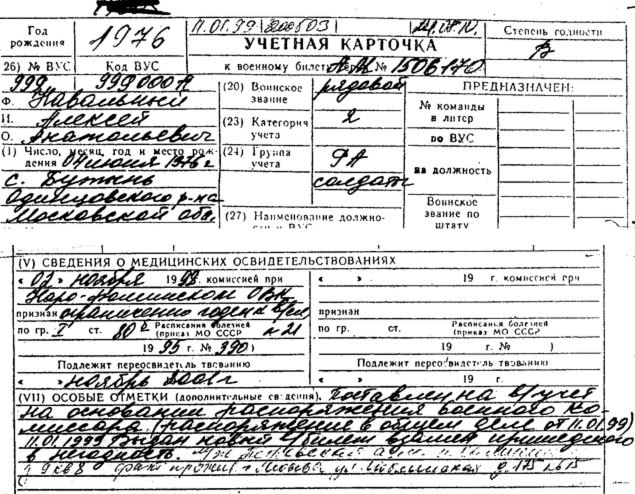 11.01.99
Год рождения
1976
УЧЕТНАЯ КАРТОЧКА
Степень годности
В
26) № ВУС
Код ВУС
к военному билету
№ 1506170
999
999000А
Ф. Навальный
И. Алексей
О. Анатольевич
(1) Число, месяц, год и место рождения 04 июня 1976 г
с. Бутынь
Одинцовского р-на
Московской обл.
(20) Воинское звание
рядовой
(23) Категория учета
2
(24) Группа учета
РА
солдаты
(27) Наименование должно-
ПРЕДНАЗНАЧЕН:
№ команды и литер
по ВУС
на должность
Воинское звание по штату
(V) СВЕДЕНИЯ О МЕДИЦИНСКИХ ОСВИДЕТЕЛЬСТВОВАНИЯХ
« 02 » ноября 1998 комиссией при
Наро-Фоминском ОВК
признан ограниченно годен к в/сл
по гр. I ст. Расписания болезней (приказ МО СССР
1995 г. № 390)
Подлежит переосвидетельствованию
« » ноябрь 2001 г
« » 19 г. комиссией при
признан
по гр. ст. Расписания болезней (приказ МО СССР
19 г. № )
Подлежит переосвидетельствованию
« » 19 г.
(VII) ОСОБЫЕ ОТМЕТКИ (дополнительные сведения). Поставлен на в/учет
на основании распоряжения военного ко-
миссара (распоряжение в общем деле от 11.01.99)
11.01.1999 Выдан новый в/билет взамен пришедшего
в негодность.
факт прожив г. Москва ул.